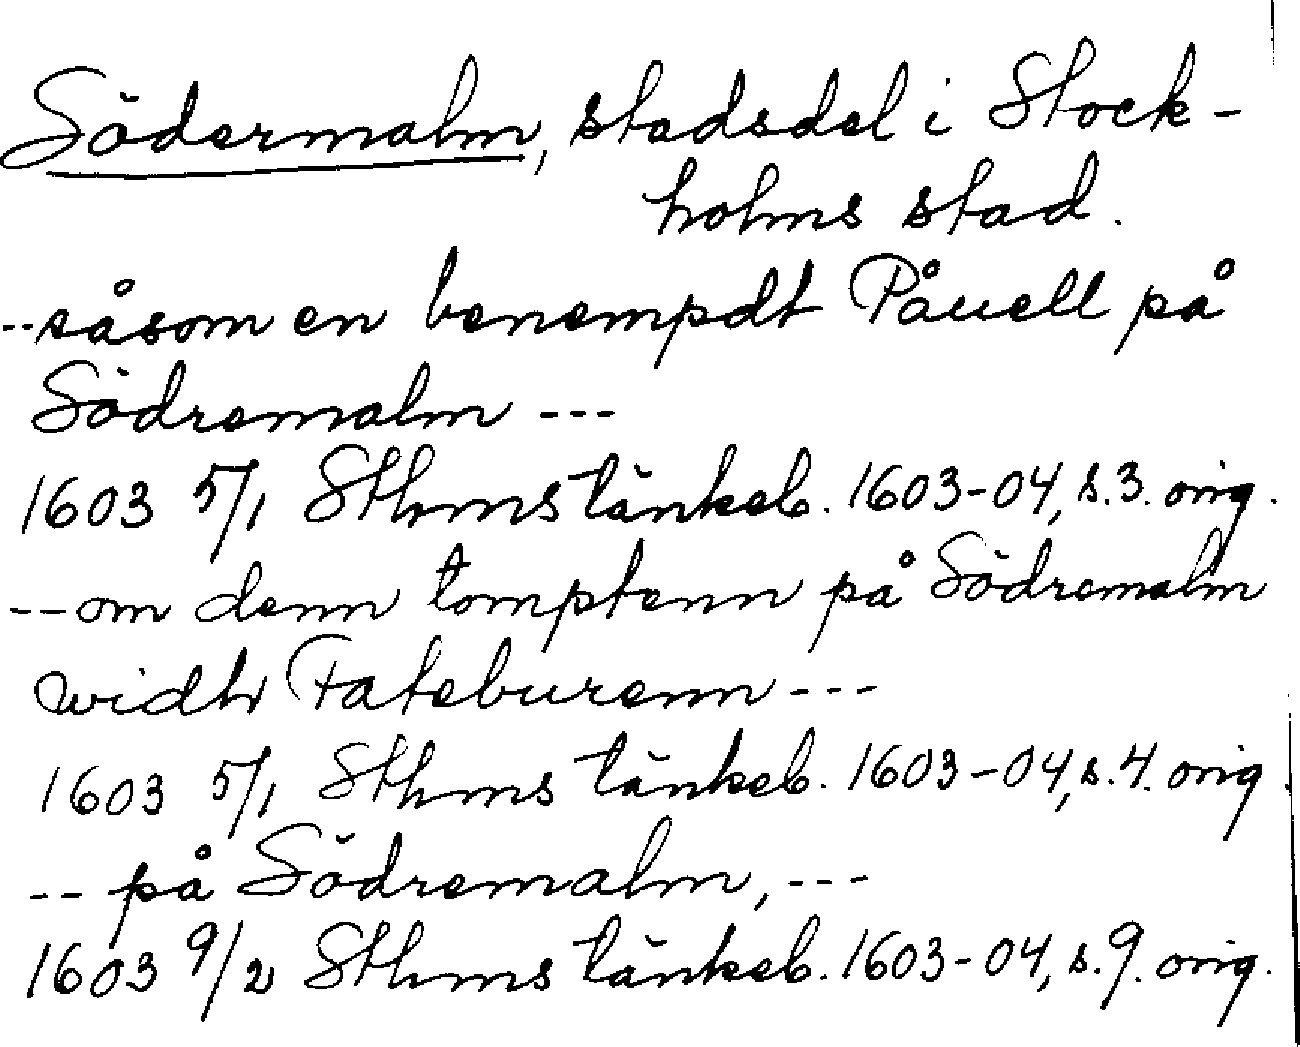 Södermalm, stadsdel i Stock-
holms stad.
--såsom en benempdt Påuell på
Södremalm ---
1603 5/1 Sthms tänkeb. 1603-04, s.3. orig.
--om denn tomptenn på Södremalm
widh Fateburenn ---
1603 5/1 Sthms tänkeb. 1603-04, s.4. orig.
-- på Södremalm, ---
1603 9/2 Sthms tänkeb. 1603-04, s.9. orig.